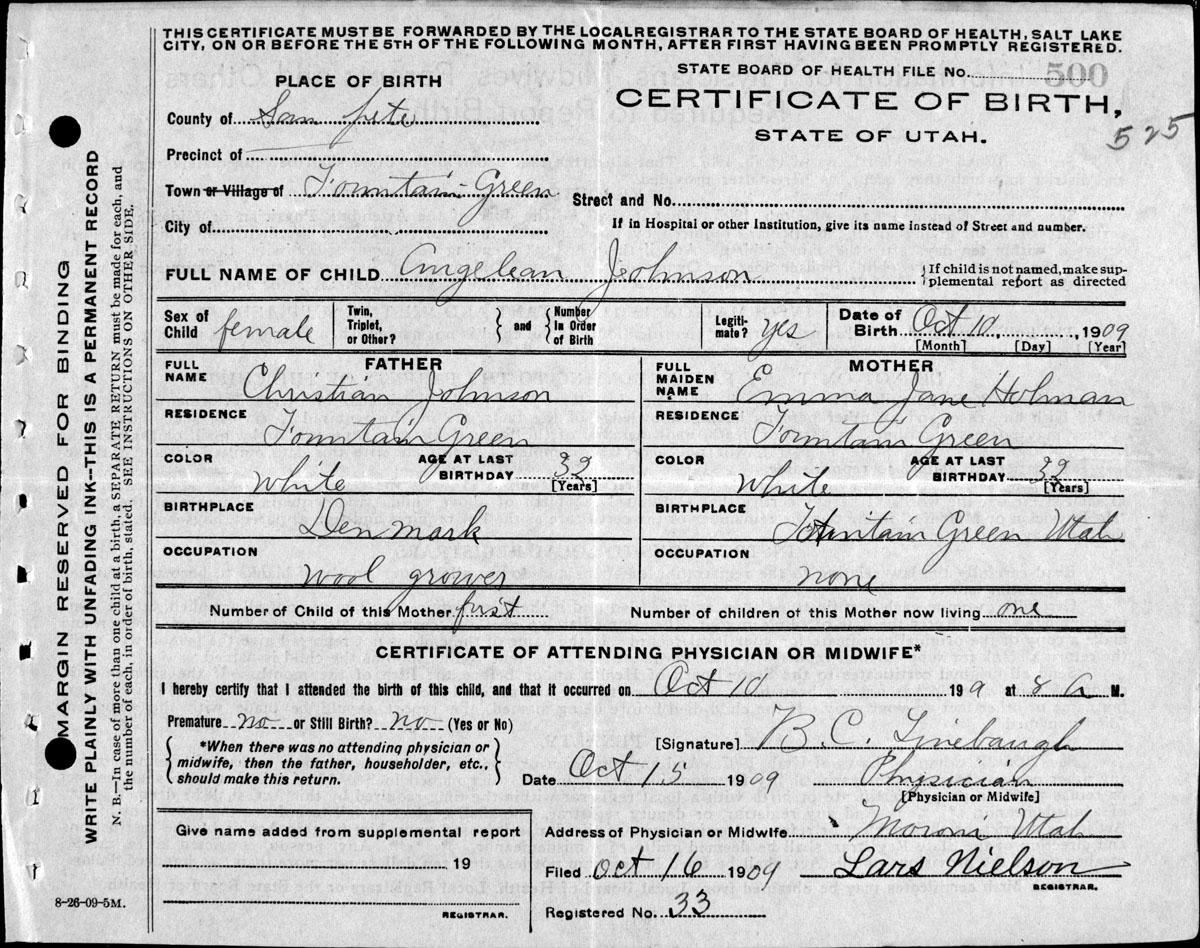 THIS CERTIFICATE MUST BE FORWARDED BY THE LOCALREGISTRAR TO THE STATE BOARD OF HEALTH, SALT LAKE
CITY, ON OR BEFORE THE 5TH OF THE FOLLOWING MONTH, AFTER FIRST HAVING BEEN PROMPTLY REGISTERED.
STATE BOARD OF HEALTH FILE No. 500
PLACE OF BIRTH
CERTIFICATE OF BIRTH,
STATE OF UTAH.
525
County of San pete
Precinct of
Town or Village of Fountain Green
Street and No.
City of
If in Hospital or other Institution, give its name instead of Street and number.
FULL NAME OF CHILD Angelean Johnson
{If child is not named, make sup-
plemental report as directed
Sex of Child female
Twin, Triplet, or Other? } and { Number In Order of Birth
Legiti-mate? yes
Date of Birth Oct 10, 1909
[Month] [Day] [Year]
FATHER
FULL NAME Christian Johnson
RESIDENCE Fountain Green
COLOR White AGE AT LAST BIRTHDAY 32
[Years]
BIRTHPLACE Denmark
OCCUPATION wool grower
MOTHER
FULL MAIDEN NAME Emma Jane Holman
RESIDENCE Fountain Green
COLOR White AGE AT LAST BIRTHDAY 32
[Years]
BIRTHPLACE Fountain Green Utah
OCCUPATION none
Number of Child of this Mother first
Number of children of this Mother now living one
CERTIFICATE OF ATTENDING PHYSICIAN OR MIDWIFE*
I hereby certify that I attended the birth of this child, and that it occurred on Oct 10 1909 at 8 A M.
Premature no or Still Birth? no (Yes or No)
{ *When there was no attending physician or
midwife, then the father, householder, etc.,
should make this return. }
[Signature] B. C. Linebaugh
Date Oct 15 1909 Physician
[Physician or Midwife]
Give name added from supplemental report
19
REGISTRAR.
Address of Physician or Midwife Moroni Utah
Filed Oct 16 1909 Lars Nielson
REGISTRAR.
Registered No. 33
8-26-09-5M.
MARGIN RESERVED FOR BINDING
WRITE PLAINLY WITH UNFADING INK—THIS IS A PERMANENT RECORD
N. B.—In case of more than one child at a birth, a SEPARATE RETURN must be made for each, and
the number of each, in order of birth, stated. SEE INSTRUCTIONS ON OTHER SIDE.